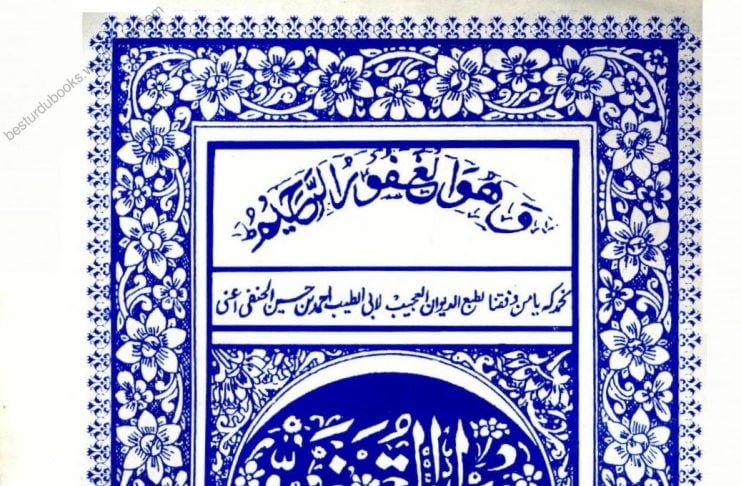 besturdubooks.w
.com
وَ هُوَ الْغَفُورُ الرَّحِيمُ
نحمدک یا من وفقنا لطبع الدیوان العجیب لابی الطیب احمد بن حسین الحنفی اعنی